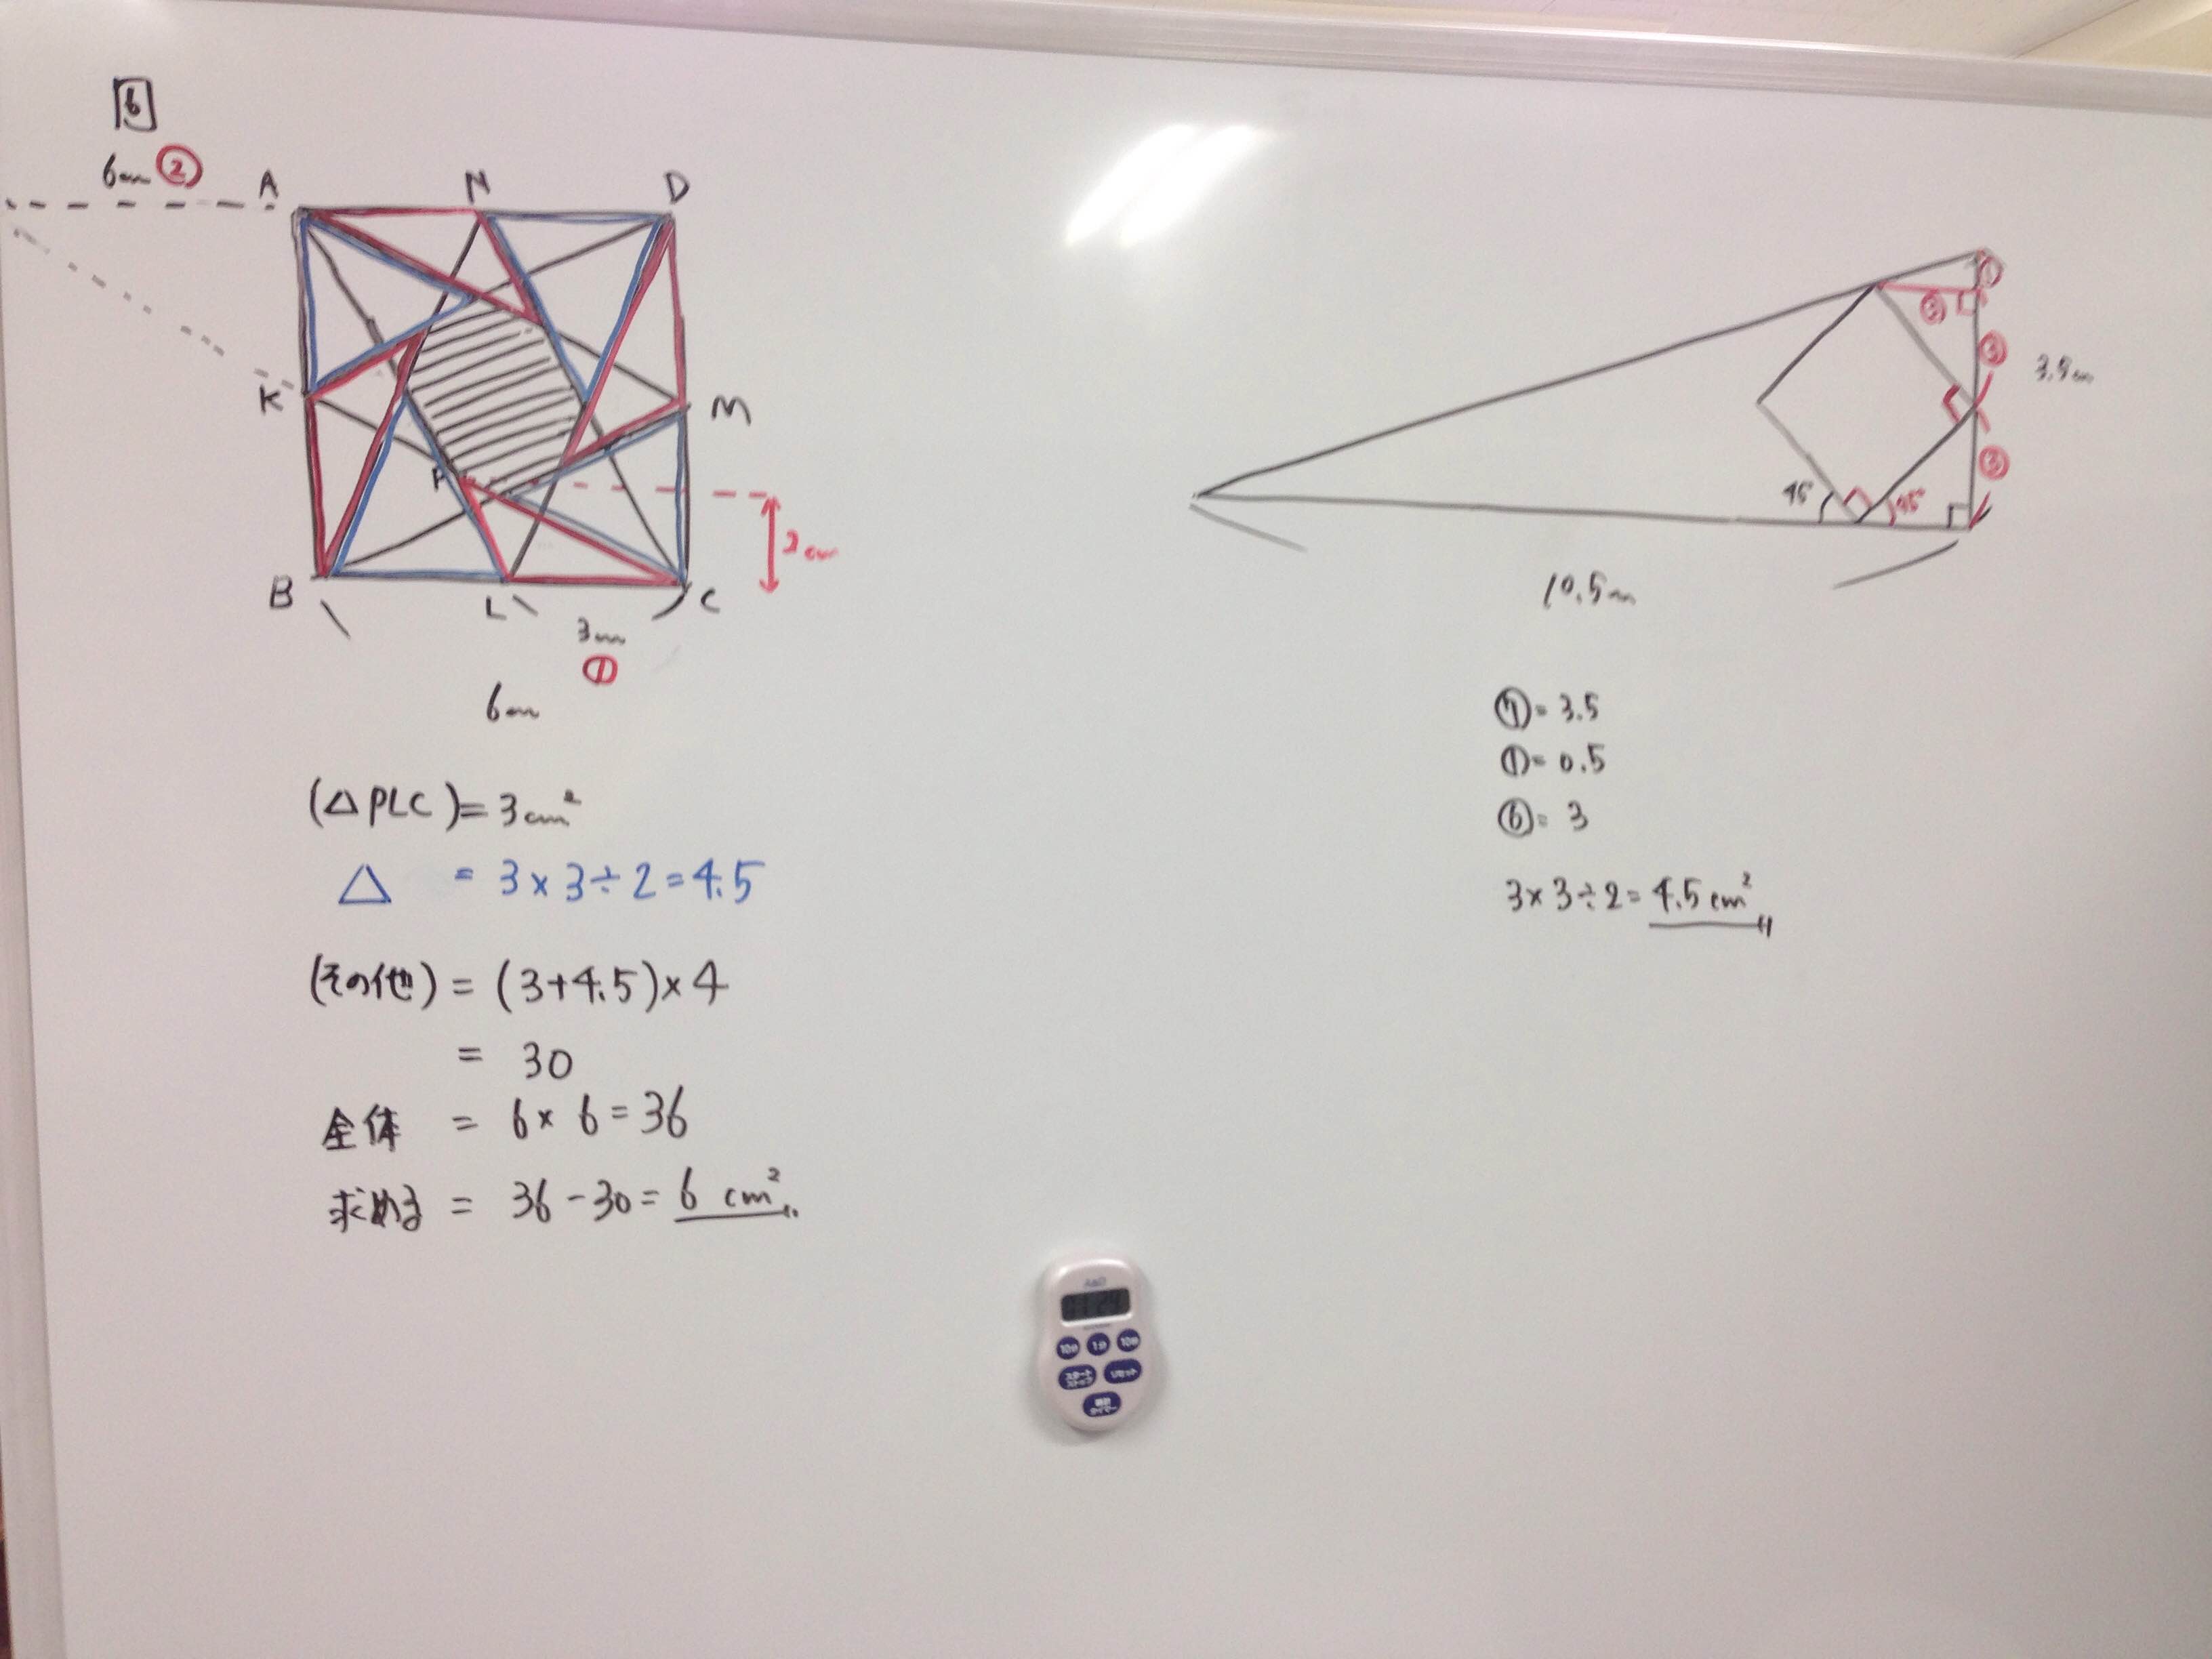 6
6cm ②
A
N
D
K
M
P
2cm
B
L
C
3cm
①
6cm
(△PLC)=3cm²
△ = 3×3÷2=4.5
(その他) = (3+4.5)×4
= 30
全体 = 6×6=36
求める = 36-30= 6 cm²
①
③
③
3.5cm
③
45°
45°
10.5cm
⑦= 3.5
①= 0.5
⑥= 3
3×3÷2= 4.5cm²
A&D
10分 1分 10秒
スタート
ストップ
リセット
タイマー